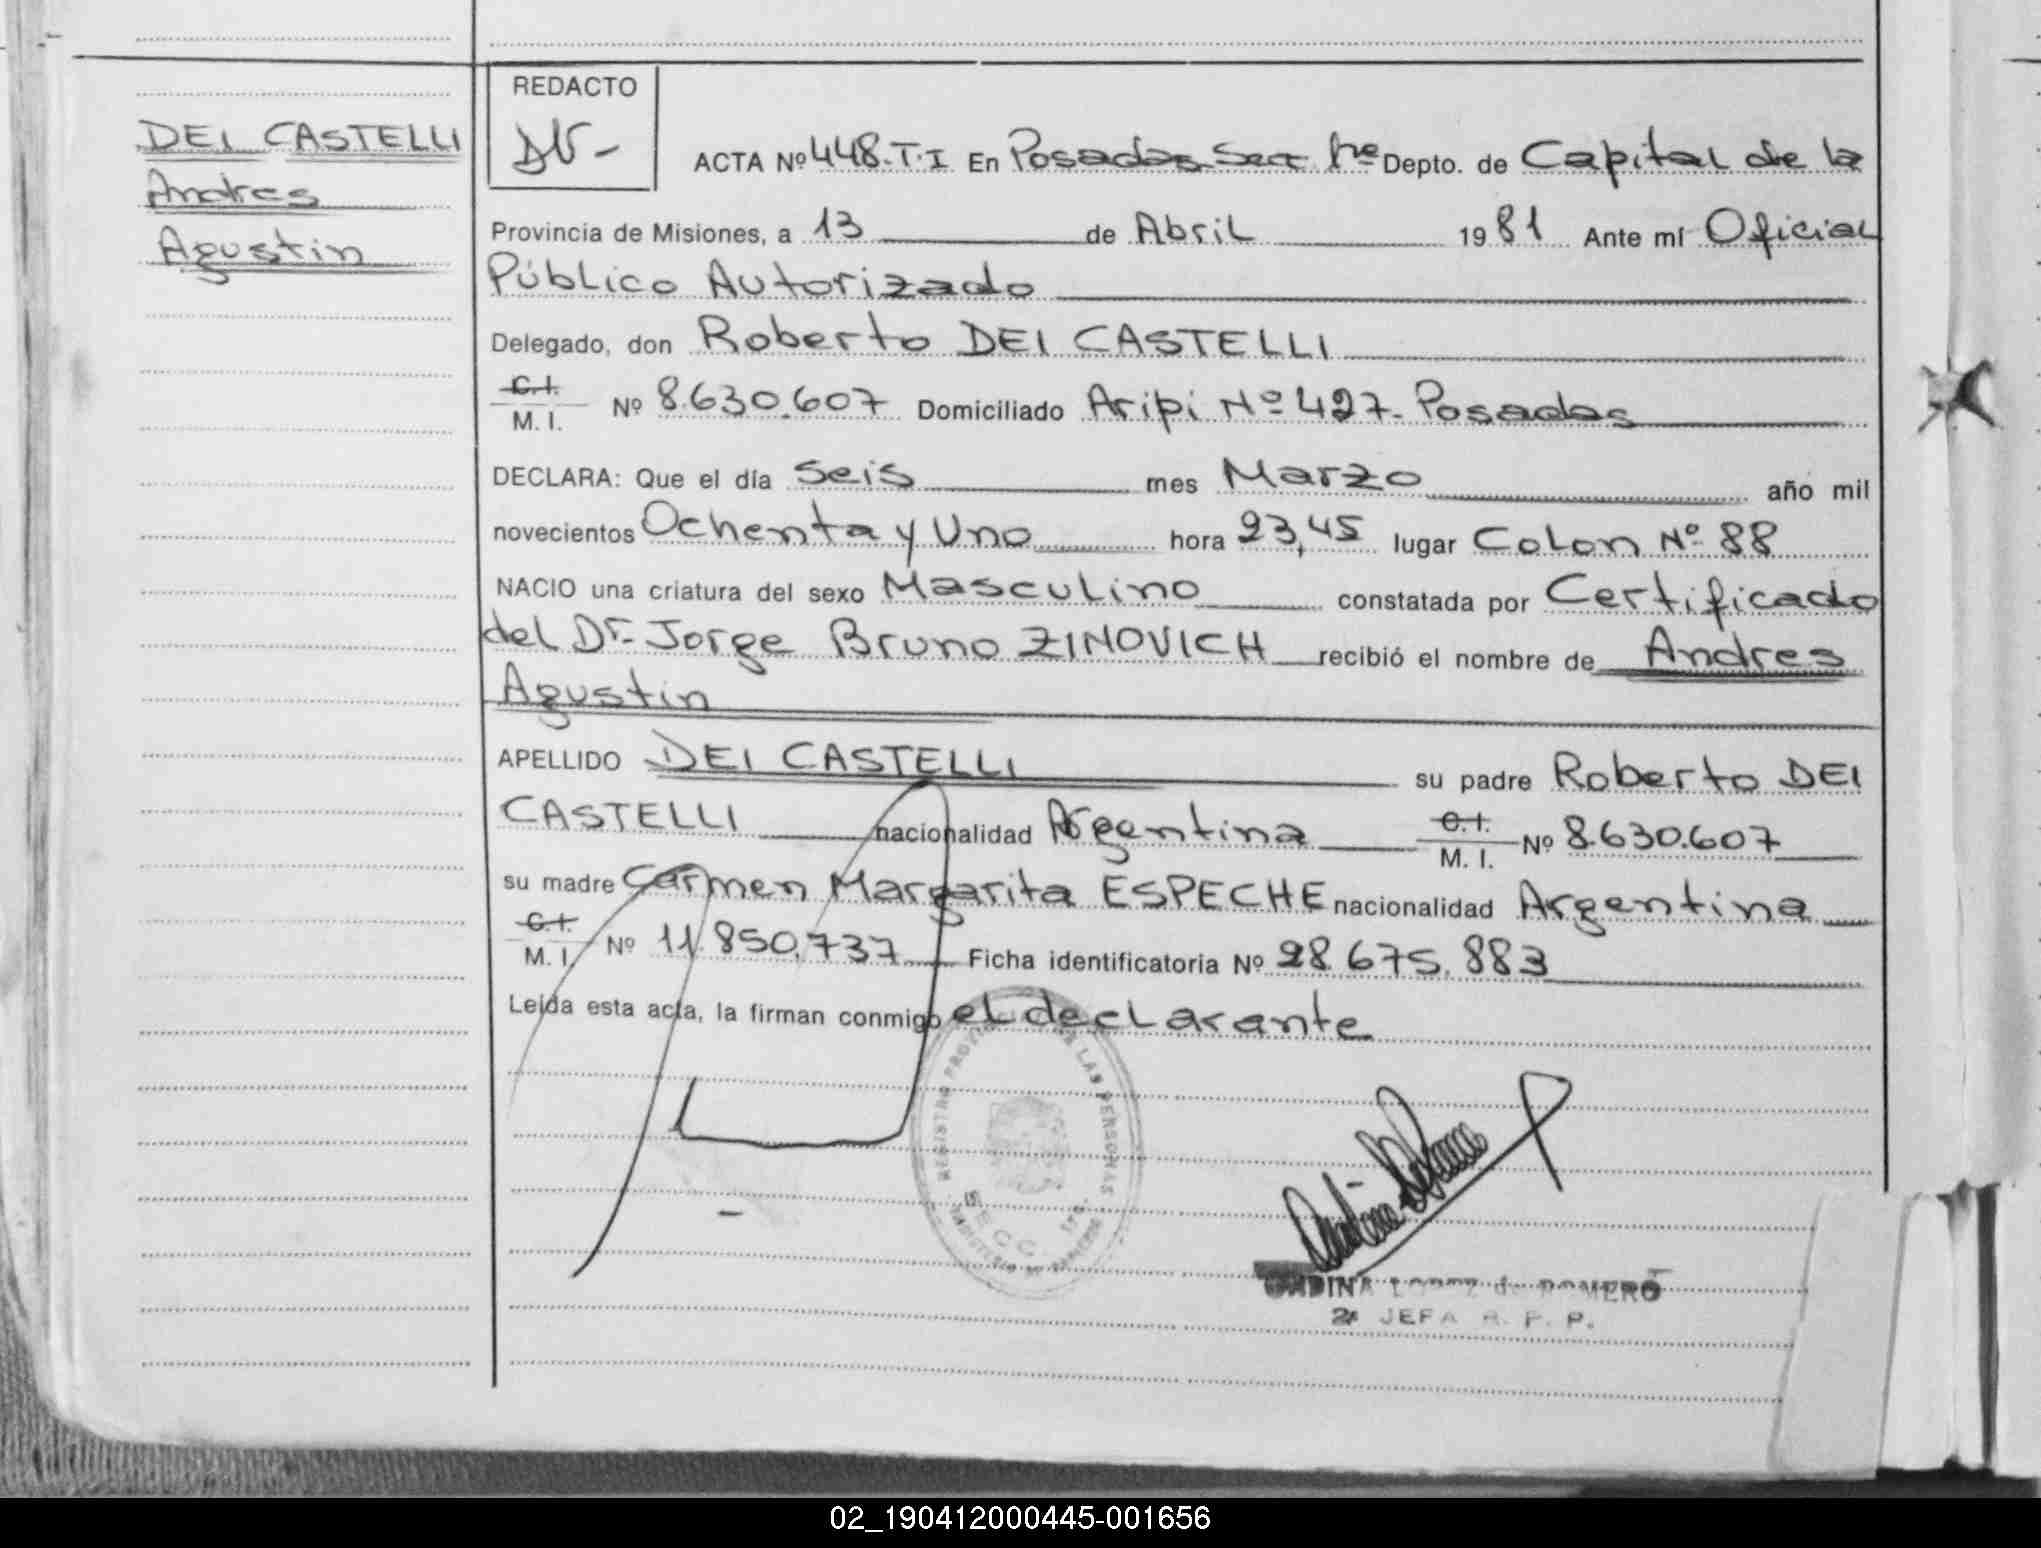 DEI CASTELLI
Andres
Agustin
REDACTO
ACTA Nº 448.T.I En Posadas Secc 1ra Depto. de Capital de la
Provincia de Misiones, a 13 de Abril 1981 Ante mí Oficial
Público Autorizado
Delegado, don Roberto DEI CASTELLI
C.I.
M. I. Nº 8.630.607 Domiciliado Aripi Nº 427. Posadas
DECLARA: Que el día Seis mes Marzo año mil
novecientos Ochenta y Uno hora 23,45 lugar Colon Nº 88
NACIO una criatura del sexo Masculino constatada por Certificado
del Dr. Jorge Bruno ZINOVICH recibió el nombre de Andres
Agustin
APELLIDO DEI CASTELLI su padre Roberto DEI
CASTELLI nacionalidad Argentina C.I. M. I. Nº 8.630.607
su madre Carmen Margarita ESPECHE nacionalidad Argentina
C.I.
M. I. Nº 11.850.737 Ficha identificatoria Nº 28.675.883
Leída esta acta, la firman conmigo el declarante
REGISTRO LAS PERSONAS
SECC. 1ra
LOPEZ de ROMERO
JEFA R. P. P.
02_190412000445-001656